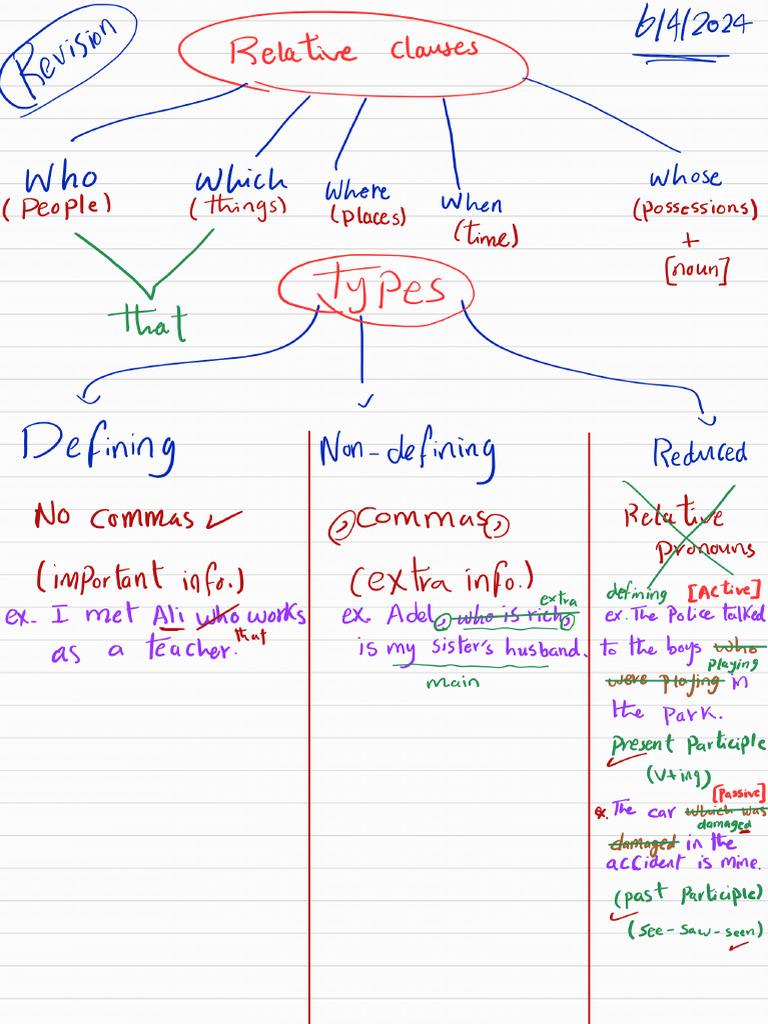 Revision
Relative clauses
6/4/2024
Who
(People)
Which
(things)
Where
(places)
When
(time)
whose
(possessions)
+
[noun]
that
Types
Defining
No commas ✓
(important info.)
ex. I met Ali who works
that
as a teacher.
Non-defining
, commas,
(extra info.)
extra
ex. Adel, who is rich,
is my sister's husband.
main
Reduced
Relative
pronouns
defining [Active]
ex. The Police talked
to the boys who
playing
were playing in
the park.
present participle
(v+ing)
[Passive]
ex. The car which was
damaged
damaged in the
accident is mine.
(past participle)
(see-saw-seen)